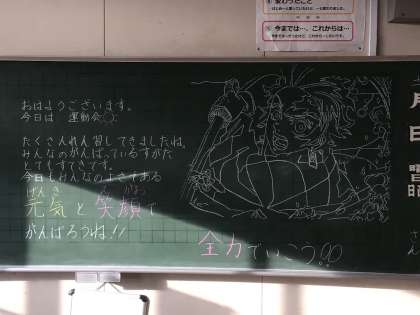 変わったこと
今までは…、これからは…
おはようございます。
今日は 運動会◯。
たくさんれん習してきましたね。
みんなのがんばっているすがた
とてもすてきです。
今日もみんなのよさである
げんき えがお
元気と笑顔で
がんばろうね!!
全力でいこう!!
月
日
曜